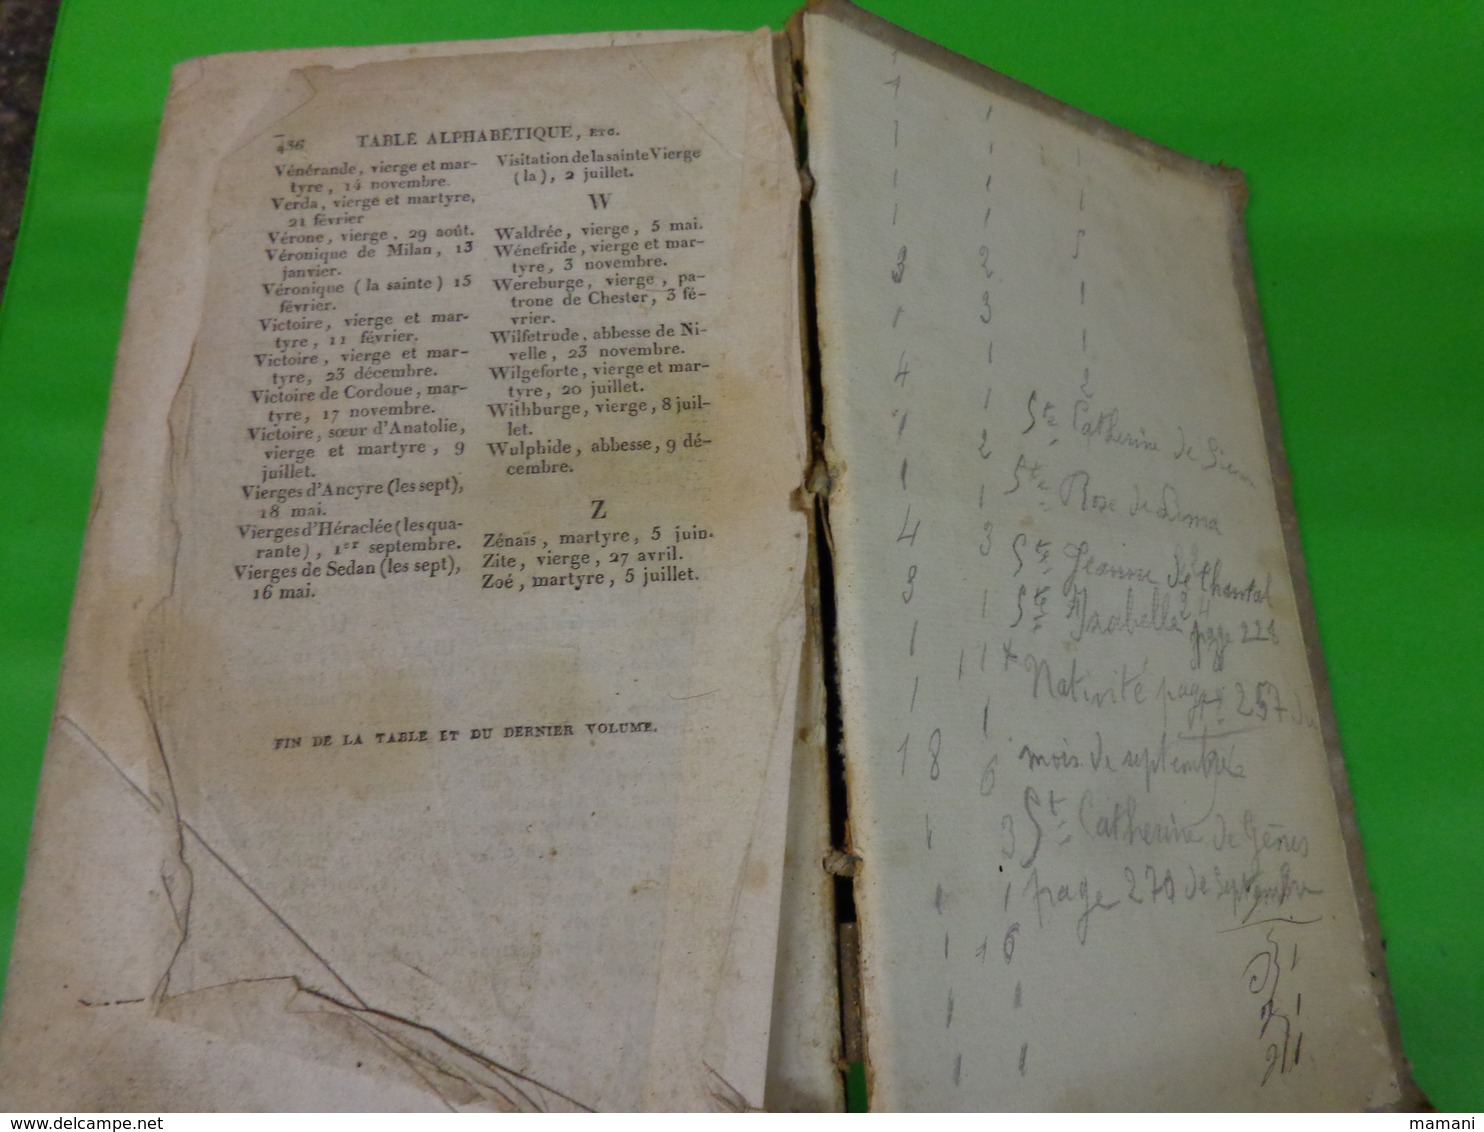 456 TABLE ALPHABÉTIQUE, ETC.
Vénérande, vierge et mar-
tyre, 14 novembre.
Verda, vierge et martyre,
21 février
Vérone, vierge, 29 août.
Véronique de Milan, 13
janvier.
Véronique (la sainte) 15
février.
Victoire, vierge et mar-
tyre, 11 février.
Victoire, vierge et mar-
tyre, 23 décembre.
Victoire de Cordoue, mar-
tyre, 17 novembre.
Victoire, sœur d'Anatolie,
vierge et martyre, 9
juillet.
Vierges d'Ancyre (les sept),
18 mai.
Vierges d'Héraclée (les qua-
rante), 1er septembre.
Vierges de Sedan (les sept),
16 mai.
Visitation de la sainte Vierge
(la), 2 juillet.
W
Waldrée, vierge, 5 mai.
Wénefride, vierge et mar-
tyre, 3 novembre.
Wereburge, vierge, pa-
trone de Chester, 3 fé-
vrier.
Wilfetrude, abbesse de Ni-
velle, 23 novembre.
Wilgeforte, vierge et mar-
tyre, 20 juillet.
Withburge, vierge, 8 juil-
let.
Wulphide, abbesse, 9 dé-
cembre.
Z
Zénaïs, martyre, 5 juin.
Zite, vierge, 27 avril.
Zoé, martyre, 5 juillet.
FIN DE LA TABLE ET DU DERNIER VOLUME.
1
1
1
1
3
1
4
1
1
4
3
1
1
18
1
1
1
1
1
1
1
1
1
2
3
1
1
2
1
3
1
1
1
6
3
1
16
1
1
1
1
1
1
2
Ste Catherine de Sienne
Ste Rose de Lima
Ste Jeanne de Chantal
Ste Izabelle page 228
Nativité page 257 du
mois de septembre
Ste Catherine de Gênes
page 270 de Septembre
mamani